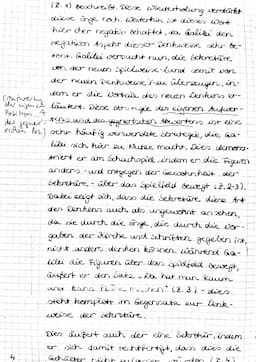 (Z. 4) beschreibt. Diese Wiederholung verstärkt
diese Enge noch. Weiterhin ist dieses Wort
hier eher negativ behaftet, da Galilei den
negativen Aspekt dieser Denkweise sehr be-
tont. Galilei versucht nun, die Sekretäre
von der neuen Spielweise und somit von
der neuen Denkweise zu überzeugen, in-
dem er die Vorteile des neuen Denkens er-
läutert. Diese Strategie des eigenen Aufwer-
tens und des gegnerischen Abwertens ist eine
sehr häufig verwendete Strategie, die Ga-
lilei sich hier zu Nutze macht. Dies demons-
triert er am Schachspiel, indem er die Figuren
anders - und entgegen der Gewohnheit der
Sekretäre - über das Spielfeld bewegt (Z. 2-3).
Dabei zeigt sich, dass die Sekretäre diese Art
des Denkens auch als ungewohnt ansehen,
da sie durch die Enge, die durch die Vor-
gaben der Kirche und Schriften gegeben ist,
nicht anders denken können. Während Ga-
lilei die Figuren über das Spielfeld bewegt,
äußert er den Satz „Da hat man Raum
und kann Pläne machen" (Z. 3) - dies
steht komplett im Gegensatz zur Denk-
weise der Sekretäre.
Dies äußert auch der eine Sekretär, indem
er sich damit rechtfertigt, dass dies die
(Aufwertung
der eigenen
Position
der
4